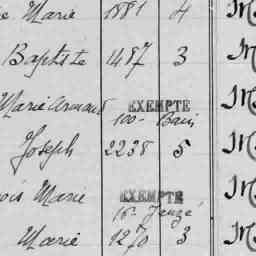 Marie 1881 4 M
Baptiste 1487 3 M
Marie Armand EXEMPTÉ M
100- Bain
Joseph 2238 5 M
Marie EXEMPTÉ M
16- Janzé
Marie 1270 3 M